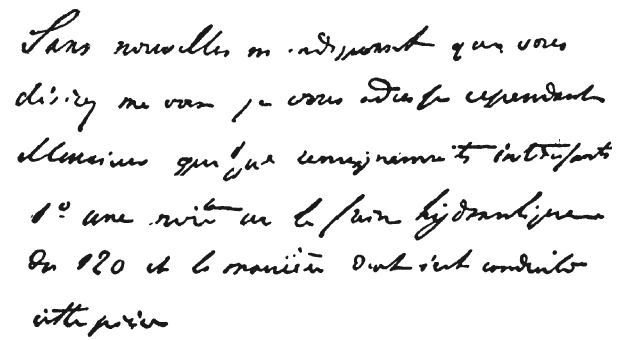 Sans nouvelles m'indiquant que vous
désirez me voir je vous adresse cependant
Monsieur quelque renseignements intéressants
1º une sur le frein hydraulique
du 120 et la manière dont s'est conduite
cette pièce